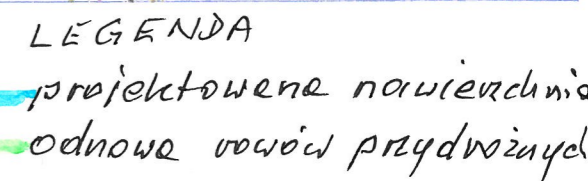 LEGENDA
projektowana nawierzchnia
odnowa rowów przydrożnych